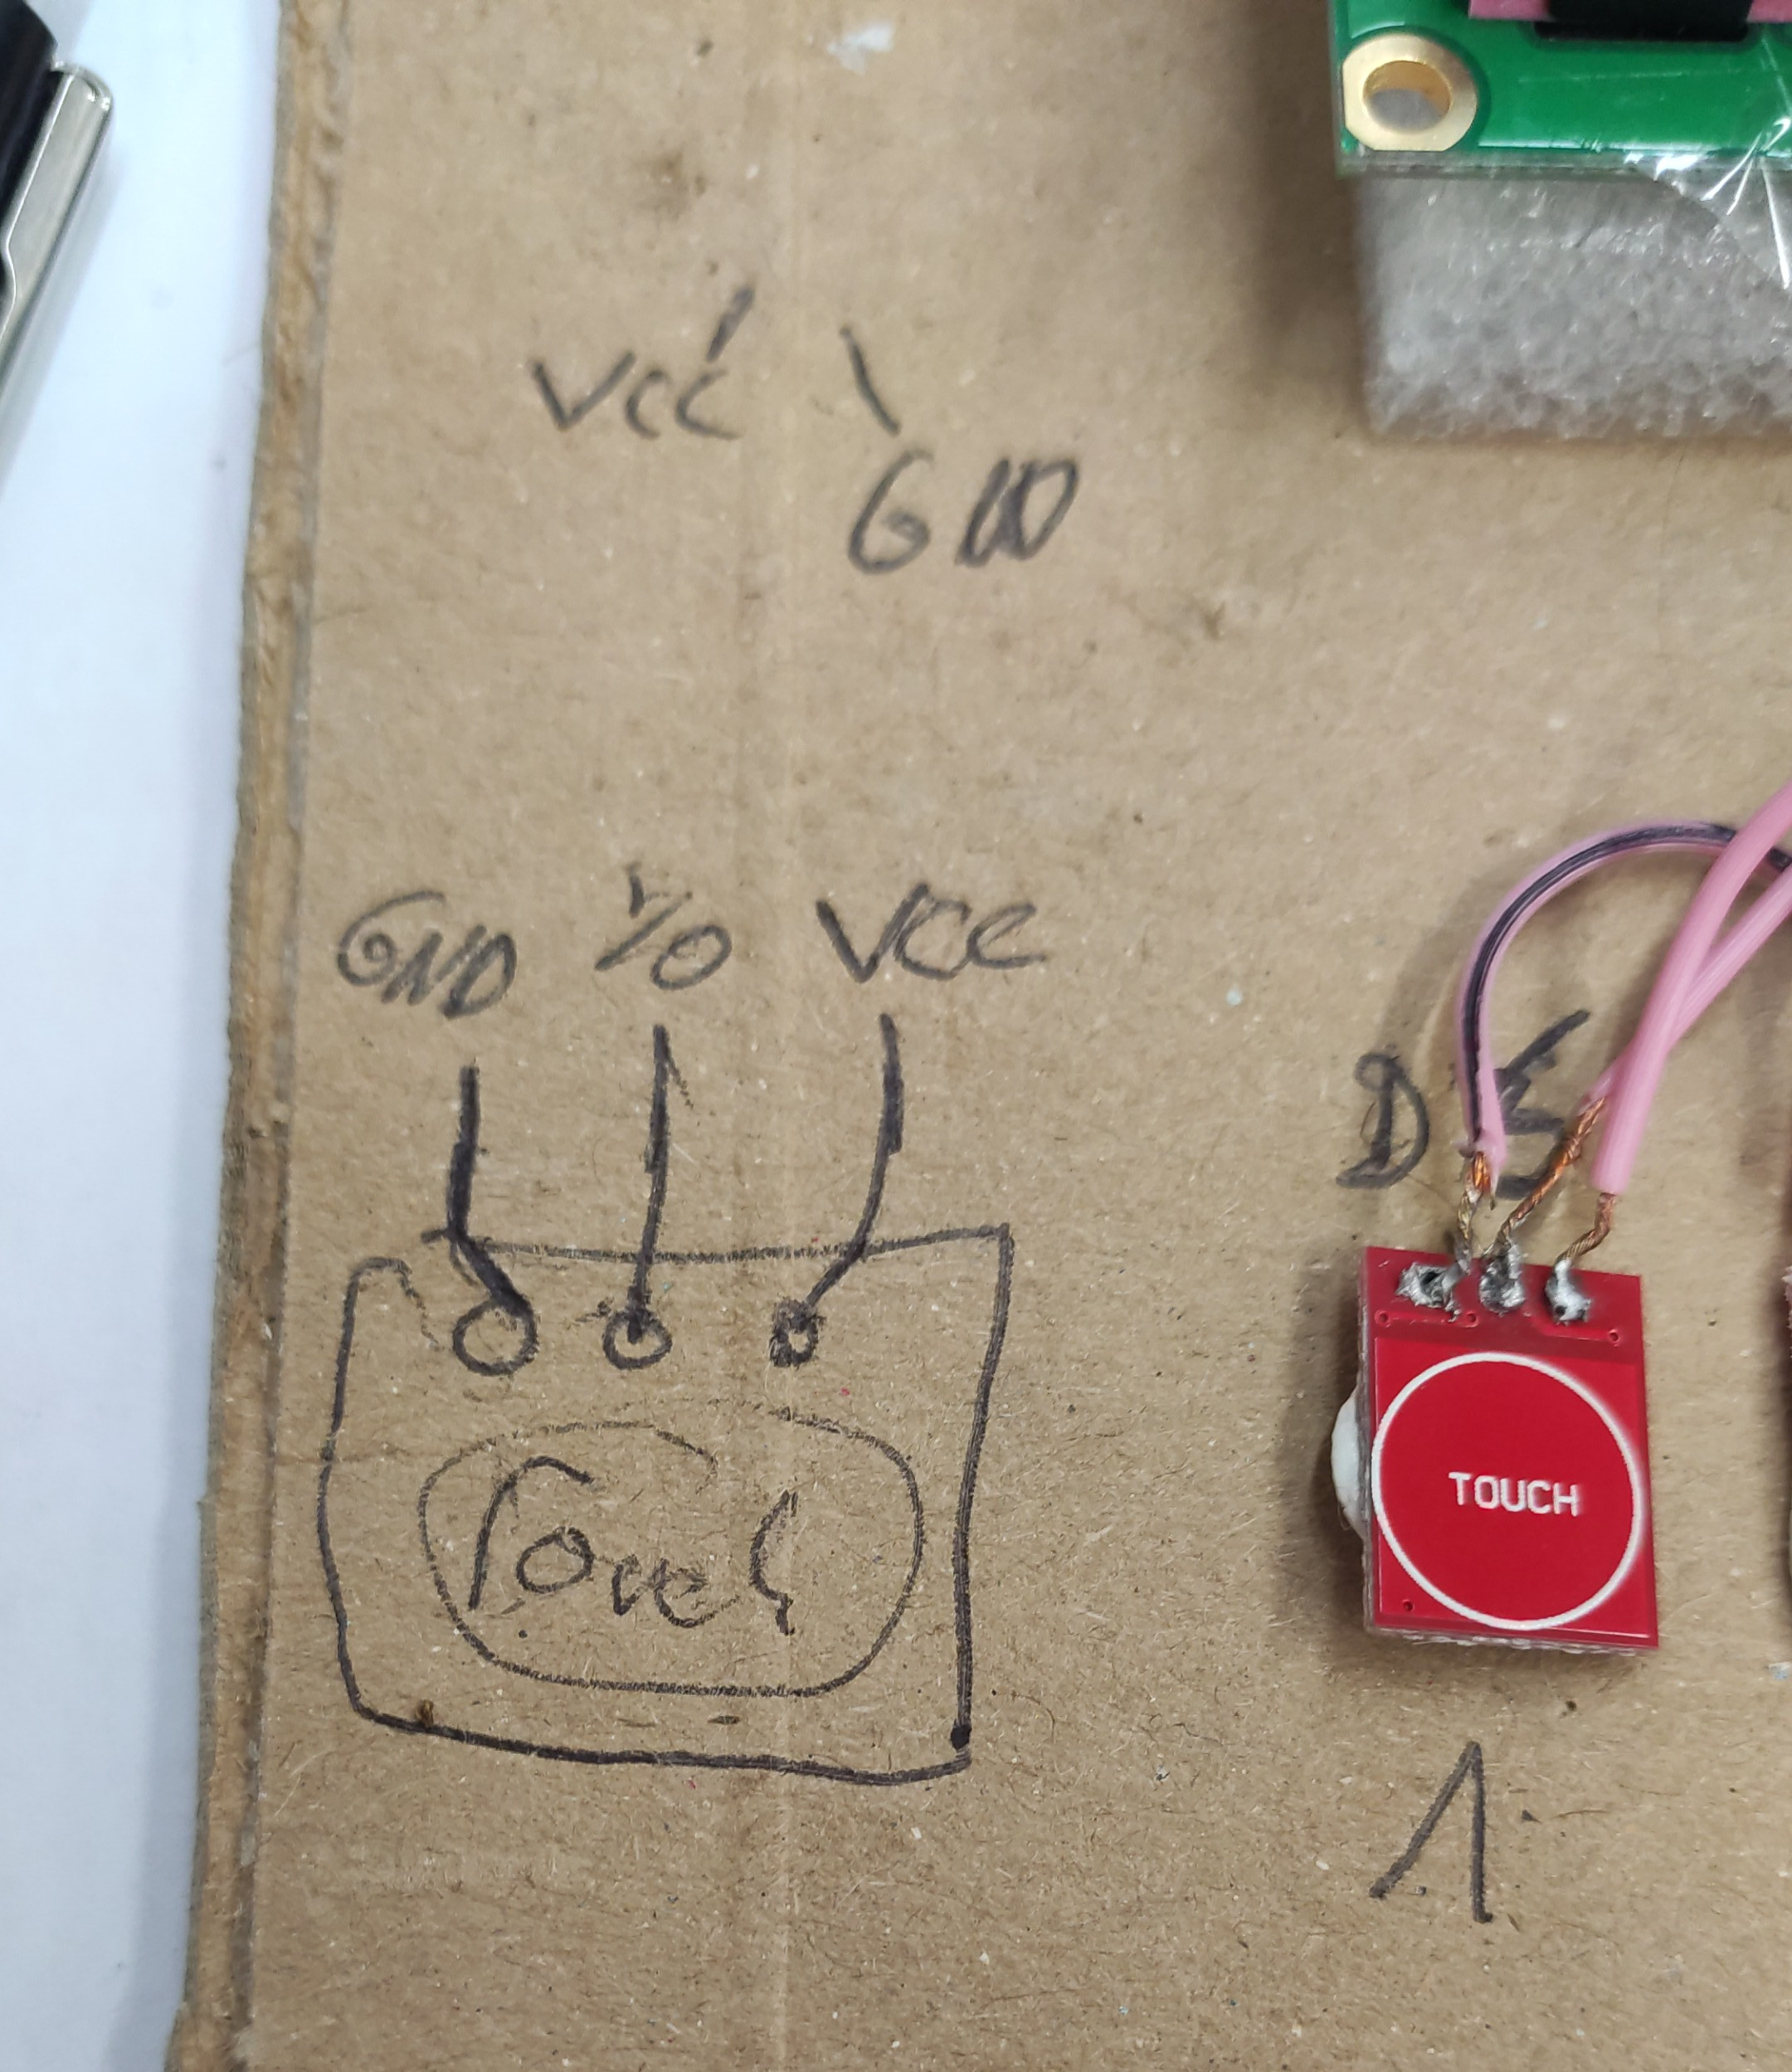 VCC
GND
GND I/O VCC
D5
TOUCH
Touch
1